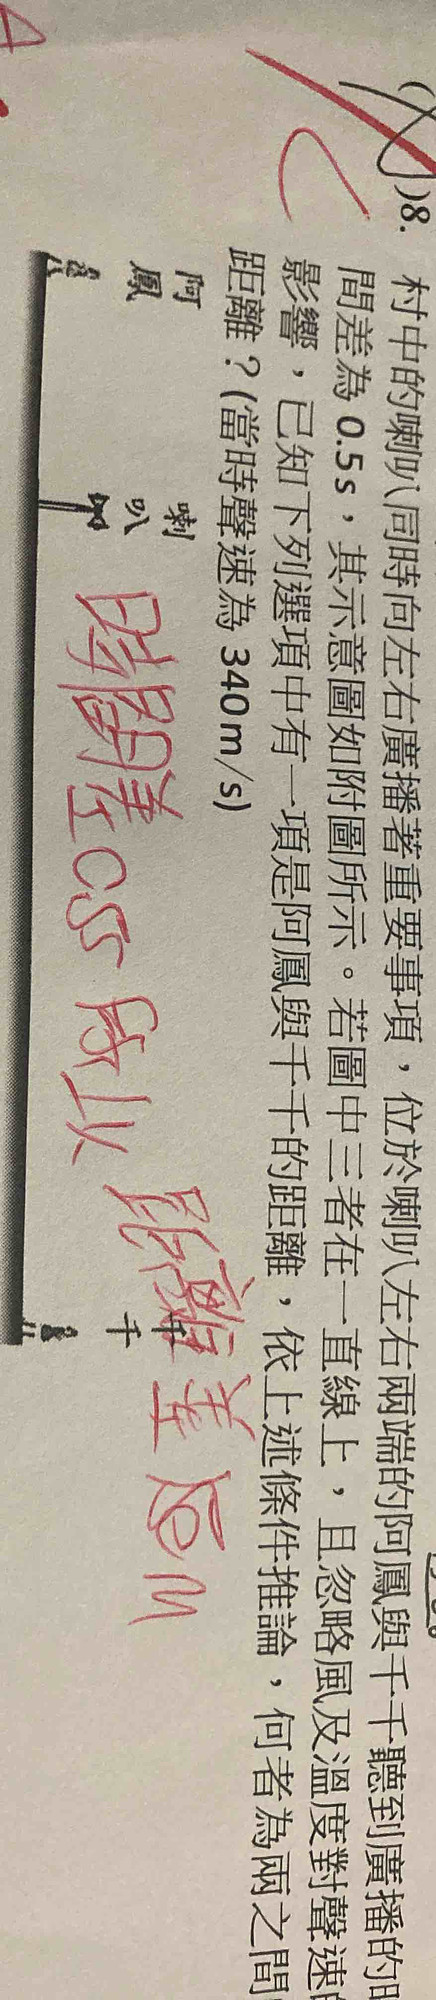 )8. 村中的喇叭同時向左右廣播著重要事項，位於喇叭左右兩端的阿鳳與千千聽到廣播的時
間差為 0.5s，其示意圖如附圖所示。若圖中三者在一直線上，且忽略風及溫度對聲速的
影響，已知下列選項中有一項是阿鳳與千千的距離，依上述條件推論，何者為兩之間
距離？(當時聲速為 340m/s)
阿鳳
喇叭
千千
時間差0.5s 所以 距離差